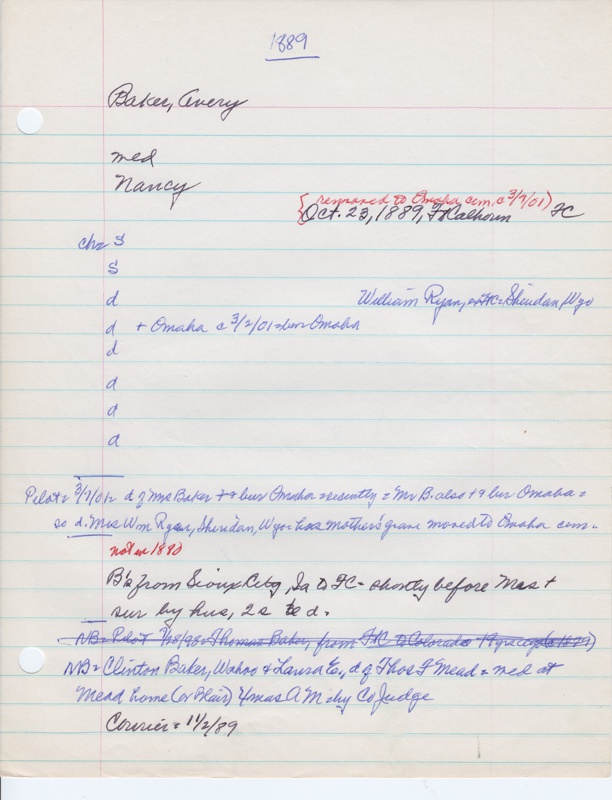 1889
Baker, Avery
med
Nancy
{removed to Omaha cem. c 3/7/01)
Oct. 23, 1889, Ft Calhoun FC
ch= S
S
d William Ryan, ex FC = Sheridan, Wyo
d + Omaha c 3/2/01 = bur Omaha
d
d
d
d
Pilot = 3/7/01 = d of Mrs Baker + & bur Omaha = recently = Mr B. also + & bur Omaha =
so d. Mrs Wm Ryan, Sheridan, Wyo = has mother's grave moved to Omaha cem.
not in 1880
B's from Sioux City, Ia to FC - shortly before Mrs +
sur by hus, 2 s d.
NB = Pilot 7/28/98 = Thomas Baker, from FC to Colorado 19 yrs ago
NB = Clinton Baker, Wahoo & Laura E., d of Thos F Mead = med at
Mead home (or Blair) A M by Co Judge
Courier = 11/2/89